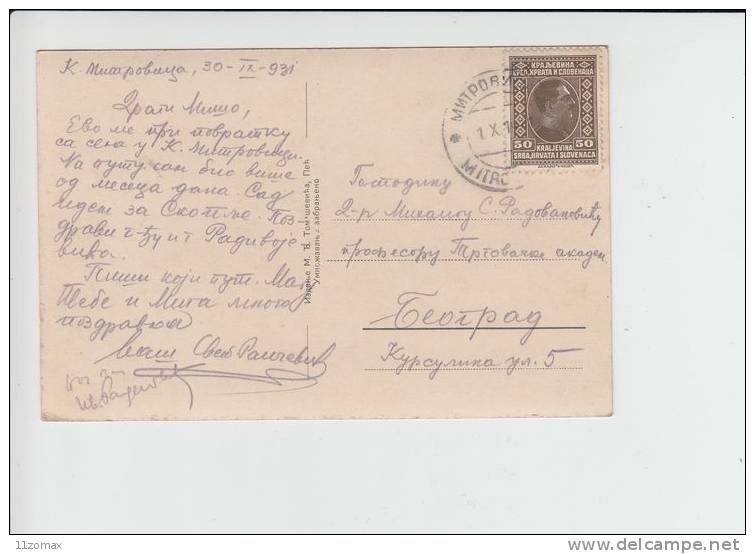 К. Митровица, 30-IX-931
Драги Мишо,
Ево ме при повратку
са села у К. Митровици.
На путу сам био више
од месеца дана Сад
идем за Скопље. Поз
драви г-ђу и Радивоје
вића.
Пиши који пут.
Тебе и Мита много
поздравља
ваш Свет.
Издање М. В. Томашевића, Пећ
Умножавање забрањено
КРАЉЕВИНА
СРБА, ХРВАТА И СЛОВЕНАЦА
50 KRALJEVINA 50
SRBA, HRVATA I SLOVENACA
* МИТРОВИ
1.X.
MITRO
Господину
Д-р Михаилу С. Радовановићу
професору Трговачке академ
Београд
Курсулина ул. 5
11zomax
delcampe.net